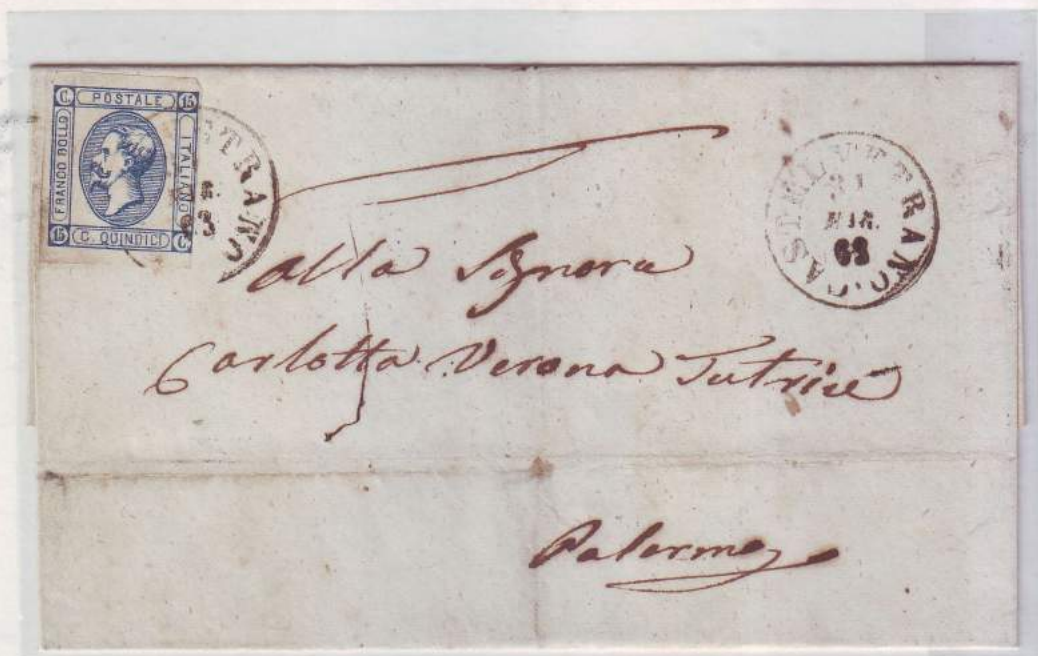 C. POSTALE 15
FRANCO BOLLO
ITALIANO
15 C. QUINDICI C.
STRANO
3
CASTELVETRANO
31
MAR.
63
Alla Signora
Carlotta Verona Tutrice
Palermo